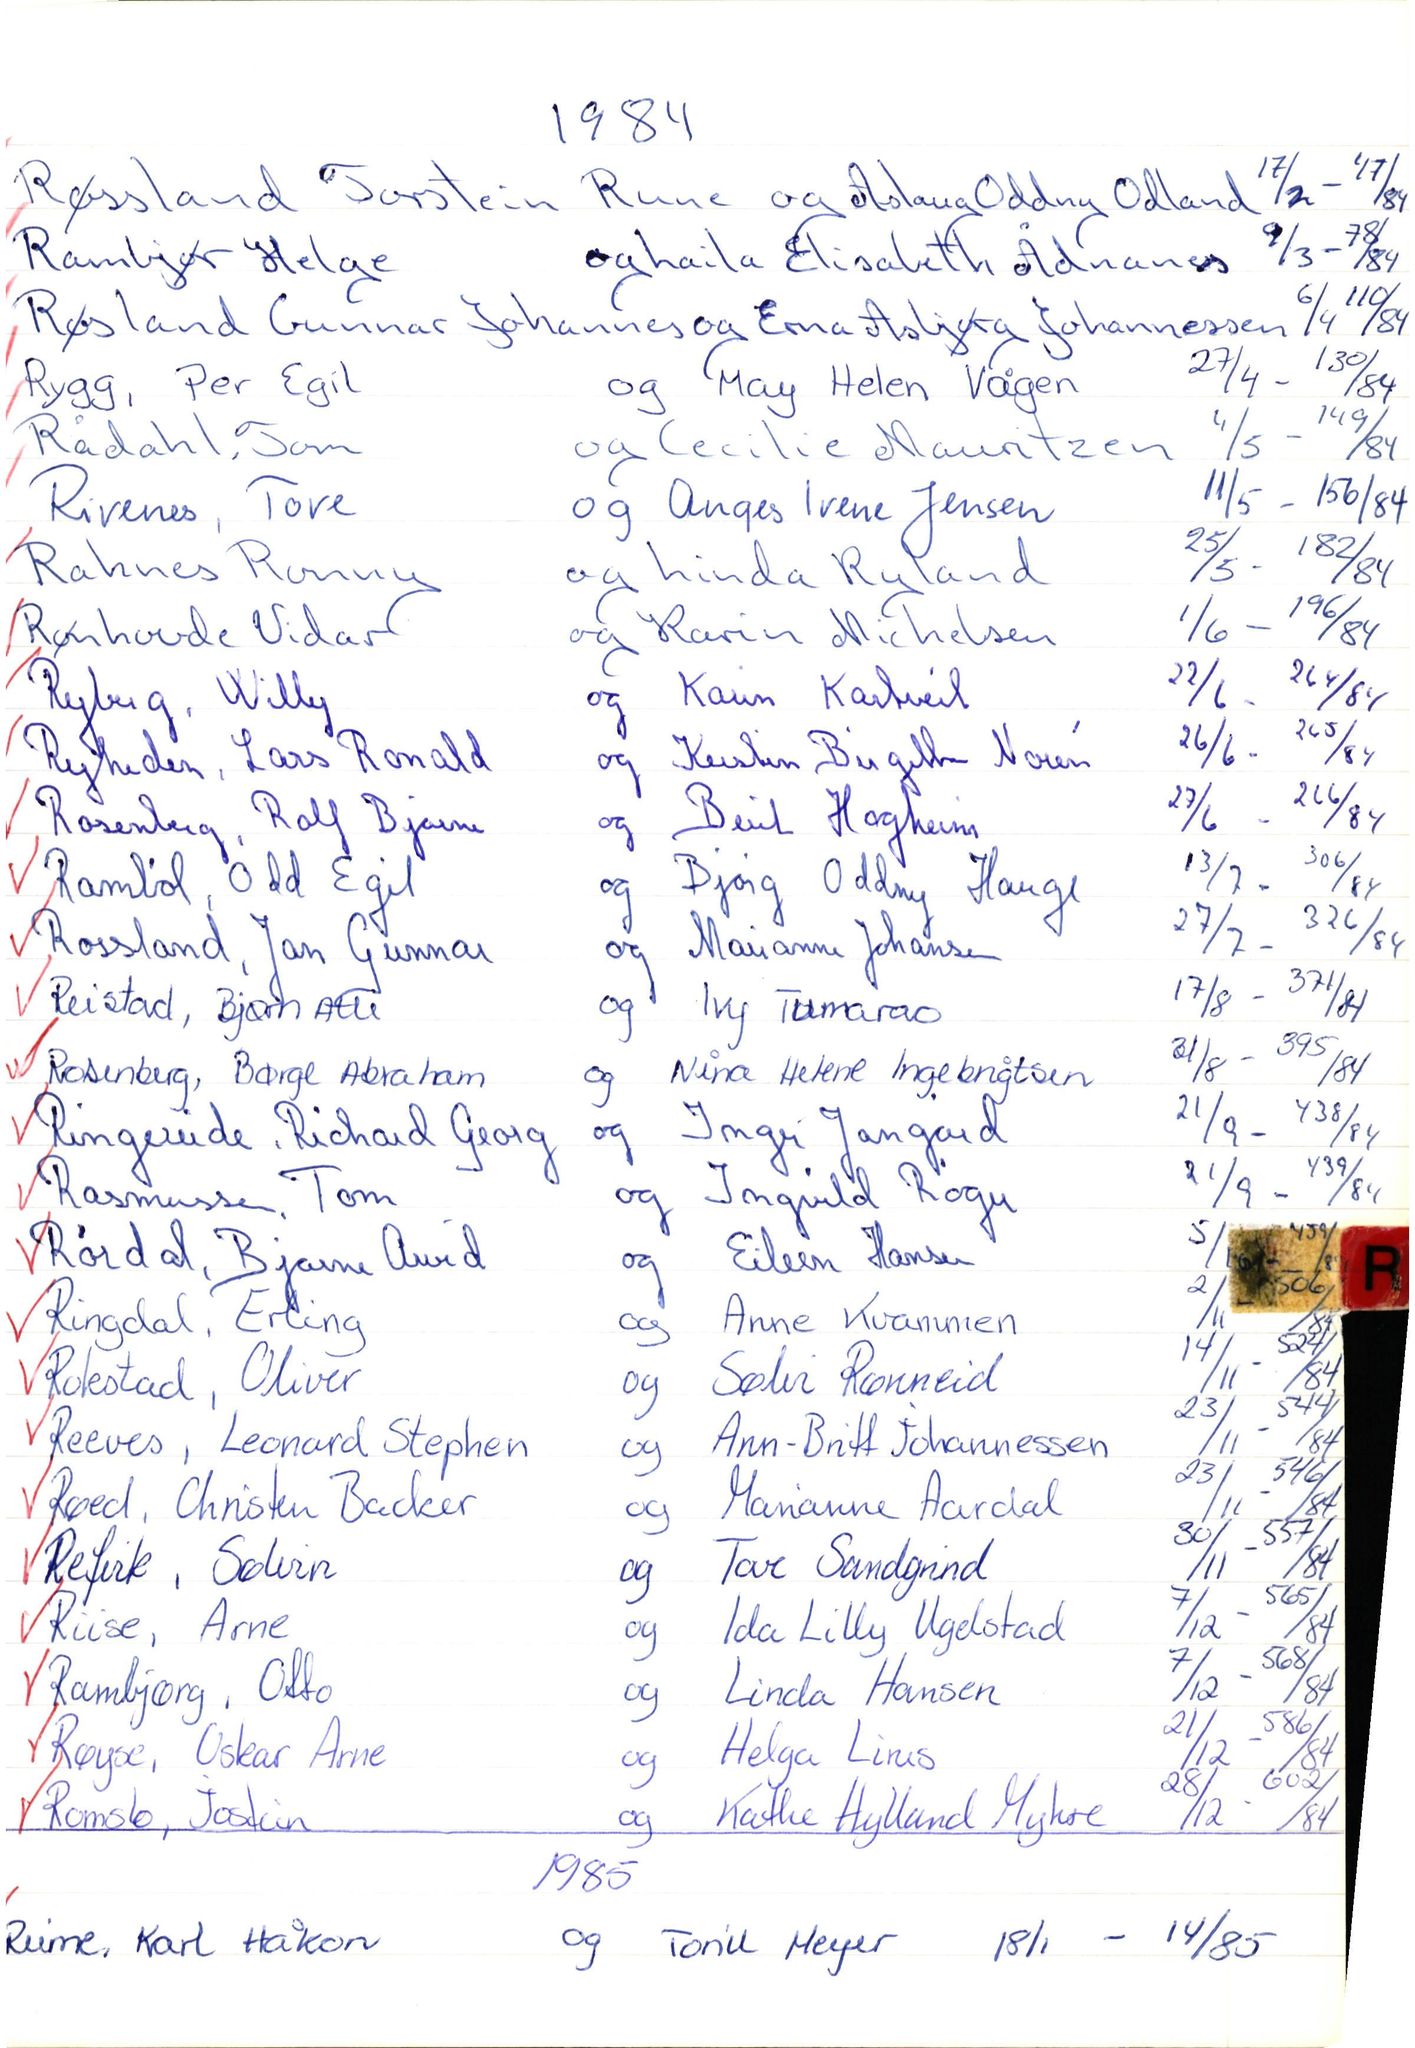 1984
Røssland Torstein Rune og Aslaug Oddny Odland 17/2 - 47/84
Rambjør Helge og Laila Elisabeth Ådnanes 9/3 - 78/84
Røsland Gunnar Johannes og Erna Asbjørg Johannessen 6/4 110/84
Rygg, Per Egil og May Helen Vågen 27/4 - 130/84
Rådahl, Tom og Cecilie Mauritzen 4/5 - 149/84
Rivenes, Tore og Anges Irene Jensen 11/5 - 156/84
Raknes Ronny og Linda Ryland 25/5 - 182/84
Rønhovde Vidar og Karin Michelsen 1/6 - 196/84
Ryberg, Willy og Karin Kartveit 22/6 - 264/84
Ryheden, Lars Ronald og Kerstin Birgitta Norén 26/6 - 265/84
Rosenberg, Rolf Bjarne og Berit Hogheim 27/6 - 266/84
Rambøl, Odd Egil og Bjørg Oddny Hauge 13/7 - 306/84
Rossland, Jan Gunnar og Marianne Johansen 27/7 - 326/84
Reistad, Bjørn Atle og Ivy Tumarao 17/8 - 371/84
Rosenberg, Børge Abraham og Nina Helene Ingebrigtsen 31/8 - 395/84
Ringereide, Richard Georg og Inger Jangård 21/9 - 438/84
Rasmussen, Tom og Ingvild 21/9 - 439/84
Rördal, Bjarne Arvid og Eileen Hansen 5/10 - 459/84
Ringdal, Erling og Anne Kvammen 2/11 - 506/84
Rokstad, Oliver og Sølvi Rønneid 14/11 - 524/84
Reeves, Leonard Stephen og Ann-Britt Johannessen 23/11 - 544/84
Røed, Christen Backer og Marianne Aardal 23/11 - 546/84
Refvik, Sølvin og Tove Sandgrind 30/11 - 557/84
Riise, Arne og Ida Lilly Ugelstad 7/12 - 565/84
Rambjørg, Otto og Linda Hansen 7/12 - 568/84
Røyse, Oskar Arne og Helga Linus 21/12 - 586/84
Romslo, Jostein og Käthe Hylland Myhre 28/12 - 602/84
R
1985
Reime, Karl Håkon og Torill Meyer 18/1 - 14/85